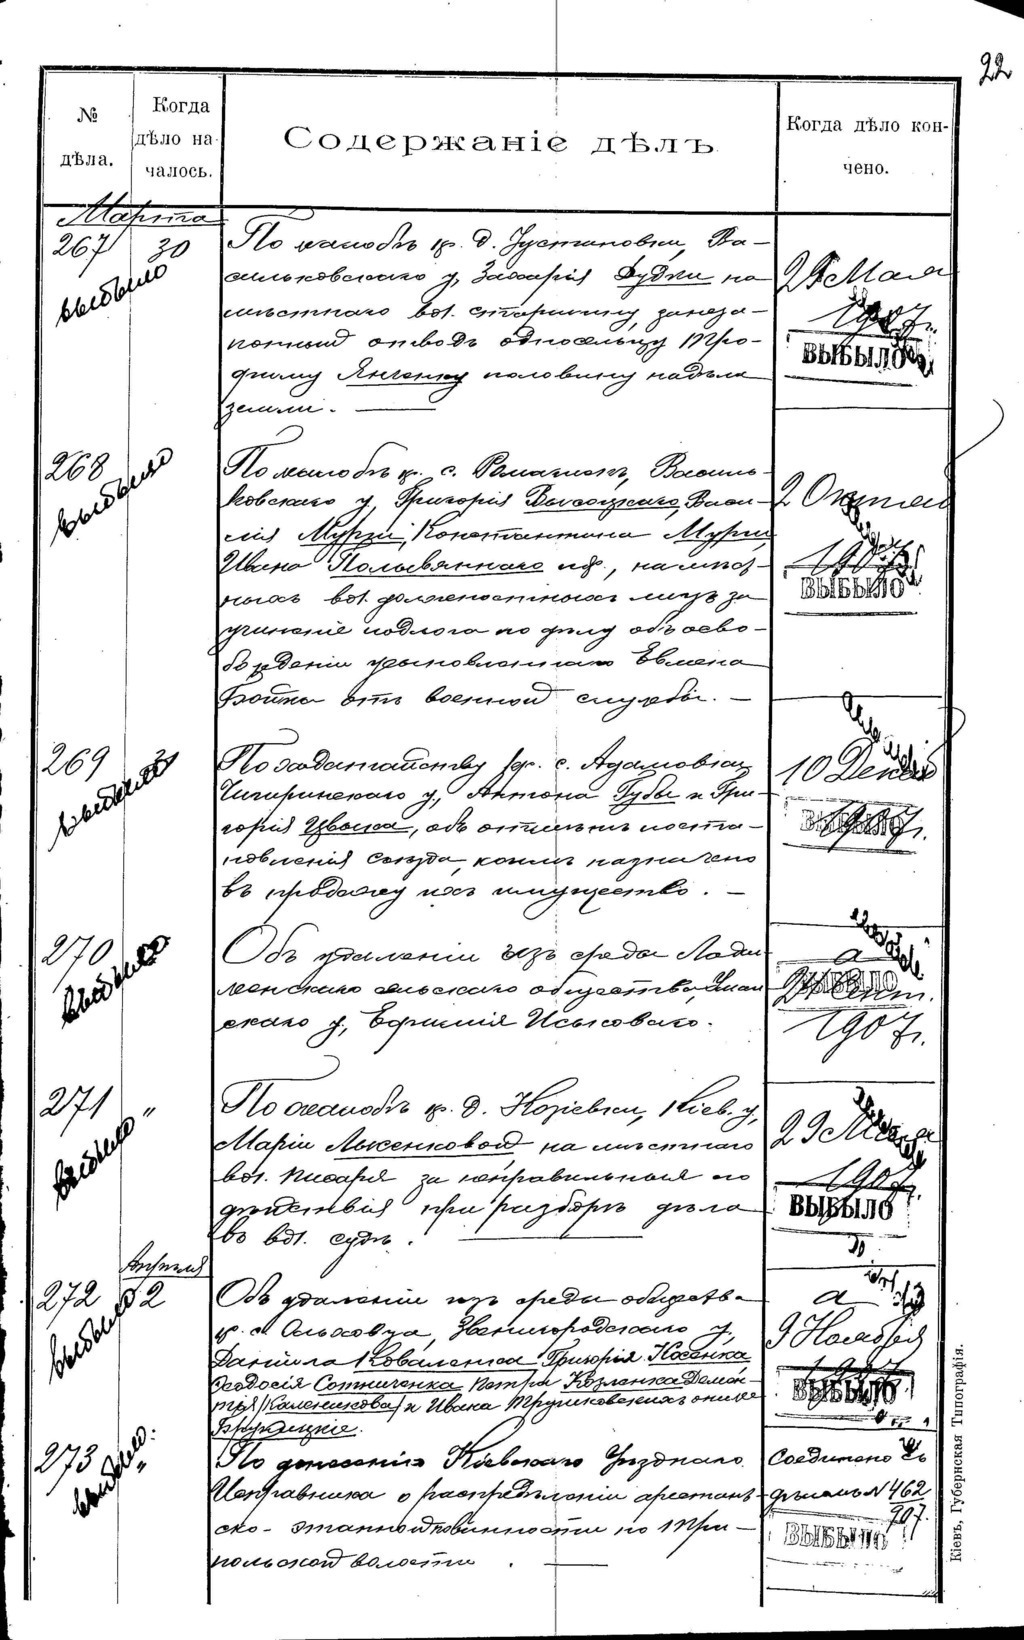 22
№ дѣла.
Когда дѣло началось.
Содержаніе дѣлъ
Когда дѣло кончено.
Марта
267 30
выбыло
По жалобѣ кр. д. Устимовки, Ва-
сильковскаго у, Захарія Дудки на
мѣстнаго вол. старшину, за
отводъ односельцу Тро-
фиму Янченку половину надѣла
земли.
2 Мая
1907 г.
ВЫБЫЛО
268
выбыло
По жалобѣ кр. с. Василь-
ковскаго у, Григорія Высоцкаго, Васи-
лія Мурги, Константина Мурги,
Ивана и др., на мѣст-
ныхъ вол. должностныхъ лицъ за
учиненіе подлога по дѣлу объ осво-
божденіи усыновленнаго Евмена
Бойка отъ военной службы.
2 Октяб
1907
ВЫБЫЛО
269 31
выбыло
По ходатайству кр. с. Адамовки,
Чигиринскаго у, Антона Губы и Гри-
горія Цвыка, объ отмѣнѣ поста-
новленія съѣзда, коимъ назначено
въ продажу ихъ имущество.
10 Декаб
1907 г.
ВЫБЫЛО
270
выбыло
Объ удаленіи изъ среды Лади-
женскаго сельскаго общества, Уман
скаго у, Ефимія Исыковаго.
а
Сент.
1907 г.
ВЫБЫЛО
271 "
выбыло
По жалобѣ кр. д. Козіевки, Кіев. у,
Маріи Лысенковой на мѣстнаго
вол. писаря за неправильныя его
дѣйствія при разборѣ дѣла
въ вол. судѣ.
29 Мая
1907.
ВЫБЫЛО
Апрѣля
272 2
выбыло
Объ удаленіи изъ среды общества
кр. с. Ольховца, Звенигородскаго у,
Даніила Коваленка Григорія Носенка
Ѳеодосія Сотниченка Петра Козленка Демен-
тія (Каленикова) и Ивана Трушковскихъ они же
Бружецкіе.
а
9 Ноября
1907
ВЫБЫЛО
273 "
выбыло
По донесенію Кіевскаго Уѣзднаго
Исправника о распредѣленіи арестант-
ско-этапной повинности по Три-
польской волости.
Соединено съ
дѣломъ N 462
907.
ВЫБЫЛО
Кіевъ, Губернская Типографія.